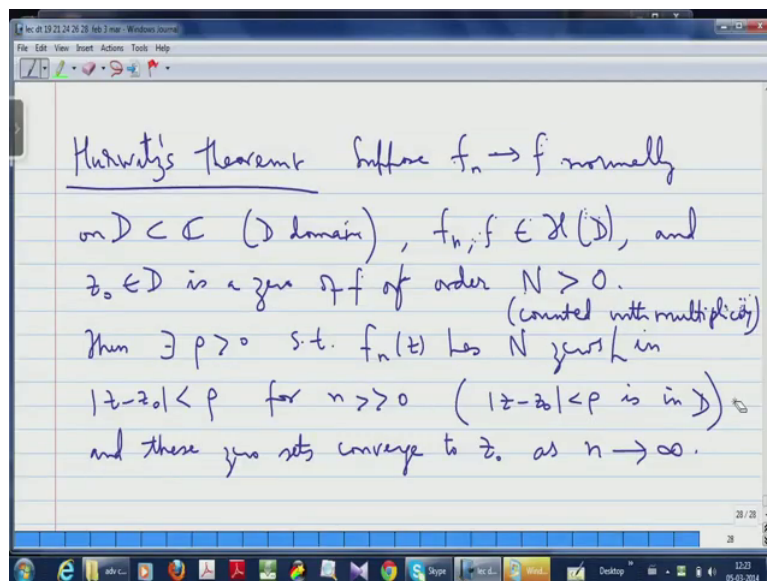 lec dt 19 21 24 26 28 feb 3 mar - Windows Journal
File Edit View Insert Actions Tools Help
Hurwitz's theorem: Suppose fₙ → f normally
on D ⊂ ℂ (D domain), fₙ, f ∈ H(D), and
z₀ ∈ D is a zero of f of order N > 0.
(counted with multiplicity)
Then ∃ ρ > 0 s.t. fₙ(z) has N zeros in
|z-z₀| < ρ for n >> 0 (|z-z₀| < ρ is in D)
and these zero sets converge to z₀ as n → ∞.
28 / 28
28
adv c... Skype lec d... Wind... Desktop 12:23
05-03-2014